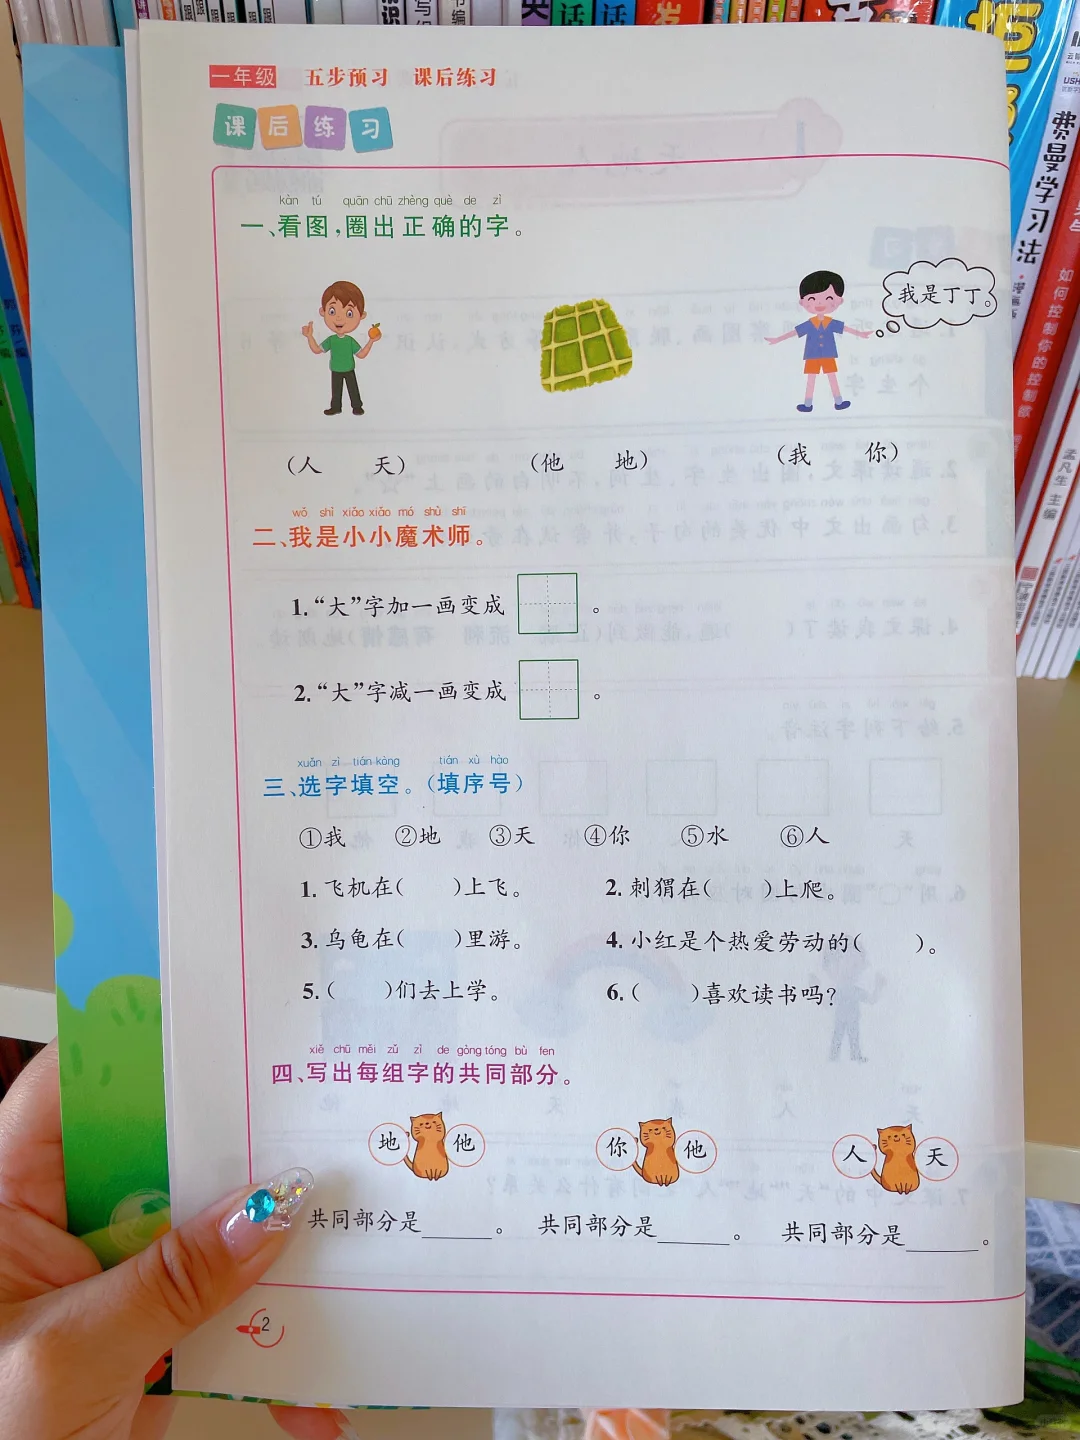 一年级 五步预习 课后练习
课后练习
kàn tú quān chū zhèng què de zì
一、看图，圈出正确的字。
我是丁丁。
（人 天） （他 地） （我 你）
wǒ shì xiǎo xiǎo mó shù shī
二、我是小小魔术师。
1.“大”字加一画变成 。
2.“大”字减一画变成 。
xuǎn zì tián kòng tián xù hào
三、选字填空。（填序号）
①我 ②地 ③天 ④你 ⑤水 ⑥人
1.飞机在( )上飞。 2.刺猬在( )上爬。
3.乌龟在( )里游。 4.小红是个热爱劳动的( )。
5.( )们去上学。 6.( )喜欢读书吗?
xiě chū měi zǔ zì de gòng tóng bù fen
四、写出每组字的共同部分。
地 他 你 他 人 天
共同部分是______。 共同部分是______。 共同部分是______。
2
费曼学习法
如何控制你的控制欲
孟凡生 主编